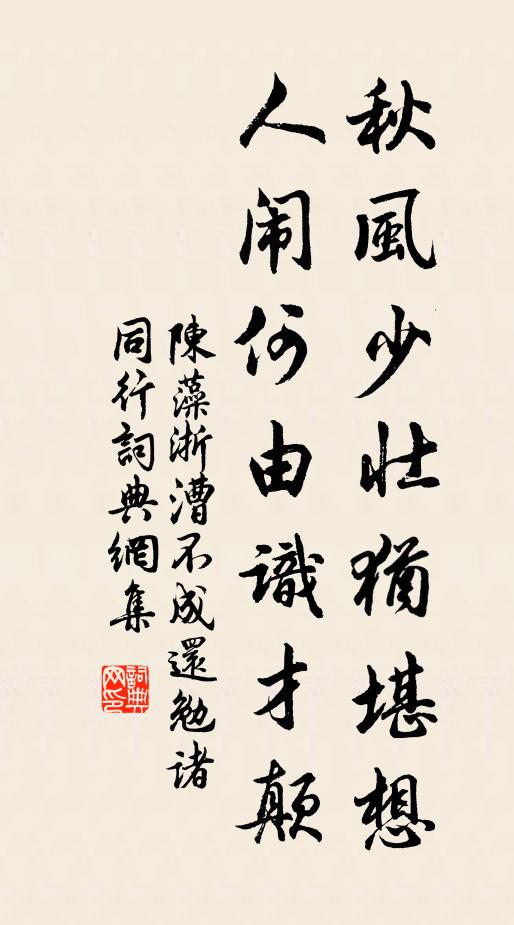 秋風少壮猶堪想
人闹何由識才顛
陳藻浙漕不成還勉諸
同行詞典網集
詞典網印